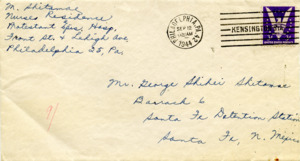 M. Shitamae
Nurses Residence
Protestant Epis. Hosp.
Front St. & Lehigh Ave
Philadelphia 25, Pa.
PHILADELPHIA, PA.
SEP 12
1944
KENSINGTON
Mr. George Shihei Shitamae
Barrack 6
Santa Fe Detention Station
Santa Fe, N. Mexico